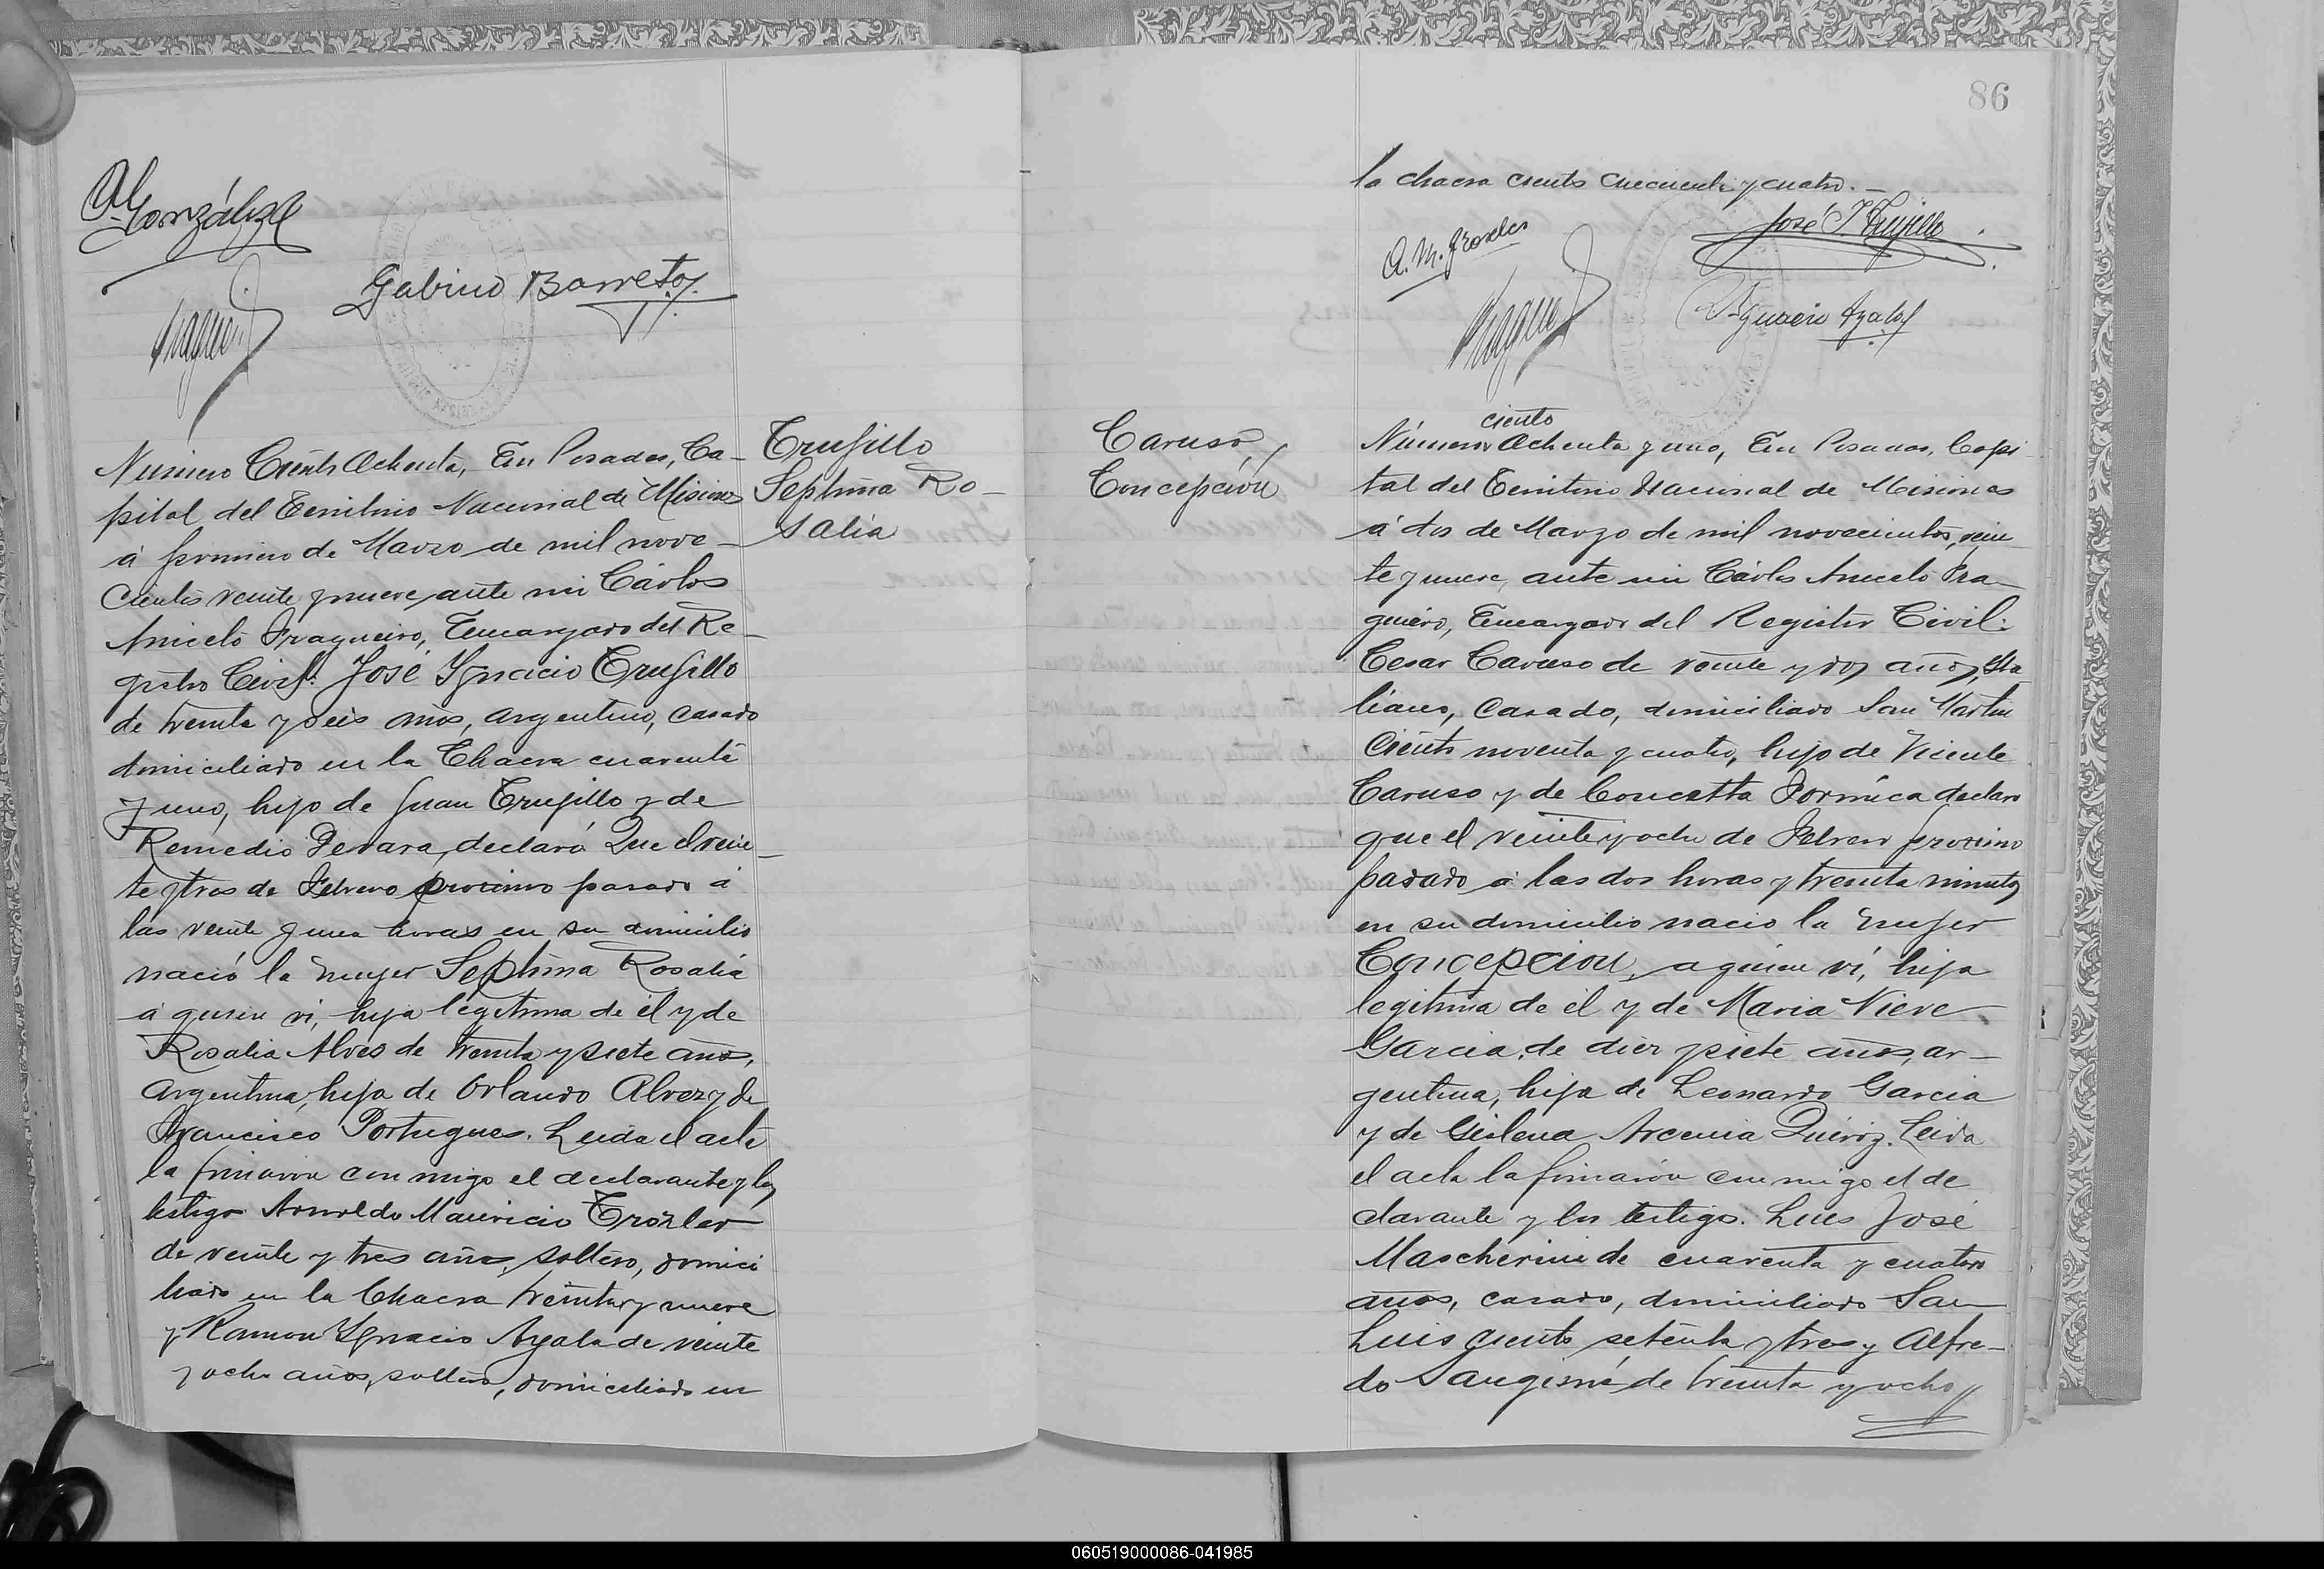 A. González
Gabino Barreto
Trujillo
Septima Ro-
salia
Número Ciento Ochenta, En Posadas, Ca-
pital del Territorio Nacional de Misiones
á primero de Marzo de mil nove-
cientos veinte y nueve, ante mi Cárlos
Aniceto Fragueiro, Encargado del Re-
gistro Civil: José Ygnacio Trujillo
de treinta y seis años, argentino, casado
domiciliado en la Chacra cuarenta
y uno, hijo de Juan Trujillo y de
Remedio declaró Que el vein-
te y tres de Febrero proximo pasado á
las veinte y una horas en su domicilio
nació la mujer Septima Rosalia
á quien vi, hija legitima de él y de
Rosalia Alves de treinta y siete años,
argentina, hija de Orlando Alvez y de
Francisca Portugues. Leida el acta
la firmaron con migo el declarante y los
testigos Arnoldo Mauricio
de veinte y tres años, soltero, domici
liado en la Chacra treinta y nueve
y Ramon Ygnacio Ayala de veinte
y ocho años, soltero, domiciliado en
86
la chacra ciento cincuenta y cuatro.-
A. M.
José I. Trujillo
Ygnacio Ayala
Caruso,
Concepción
ciento
Número Ochenta y uno, En Posadas, Capi-
tal del Territorio Nacional de Misiones
á dos de Marzo de mil novecientos, vein-
te y nueve, ante mi Cárlos Aniceto Fra-
gueiro, Encargado del Registro Civil:
Cesar Caruso de veinte y dos años, Ita
liano, casado, domiciliado San Martin
Ciento noventa y cuatro, hijo de Vicente
Caruso y de Concetta Formica declaro
que el veinte y ocho de Febrero proximo
pasado á las dos horas y treinta minutos
en su domicilio nacio la mujer
Concepcion, a quien ví, hija
legitima de él y de Maria Nieve
Garcia, de diez y siete años, ar-
gentina, hija de Leonardo Garcia
y de Arcenia Quiróz. Leida
el acta la firmaron con migo el de
clarante y los testigos. Luis José
Mascherini de cuarenta y cuatro
años, casado, domiciliado San
Luis ciento setenta y tres y Alfre-
do de treinta y ocho
060519000086-041985